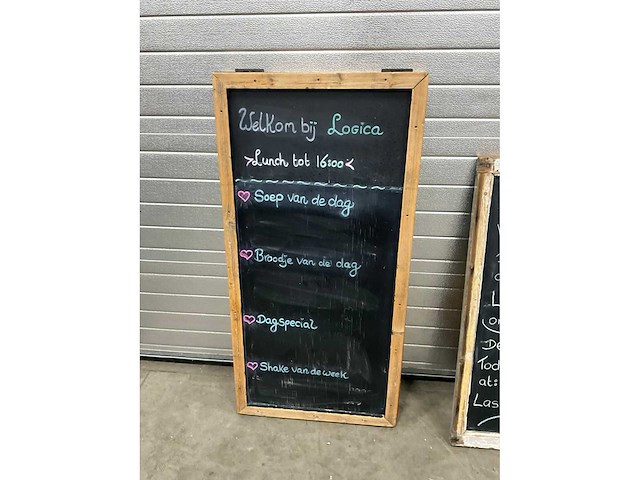 Welkom bij Logica
>Lunch tot 16:00<
Soep van de dag
Broodje van de dag
Dagspecial
Shake van de week
De
Tod
at:
Las